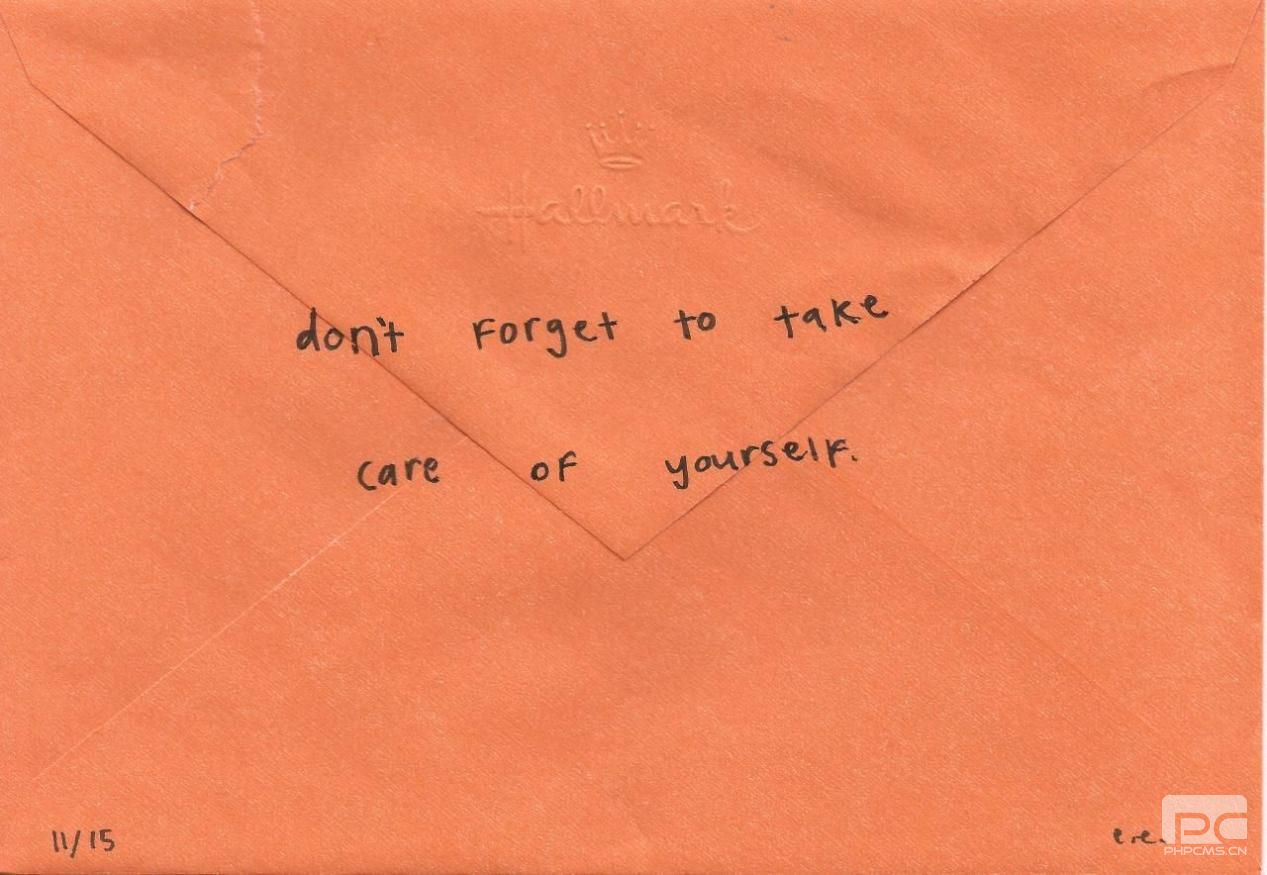 Hallmark
don't forget to take
care of yourself.
11/15
PC
PHPCMS.CN